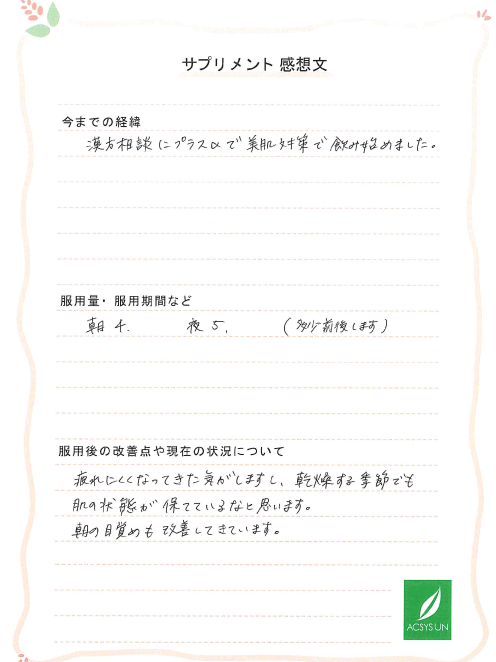 サプリメント 感想文
今までの経緯
漢方相談にプラスαで美肌対策で飲み始めました。
服用量・服用期間など
朝 4. 夜 5. (多少前後します)
服用後の改善点や現在の状況について
疲れにくくなってきた気がしますし、乾燥する季節でも
肌の状態が保てているなと思います。
朝の目覚めも改善してきています。
ACSYSUN